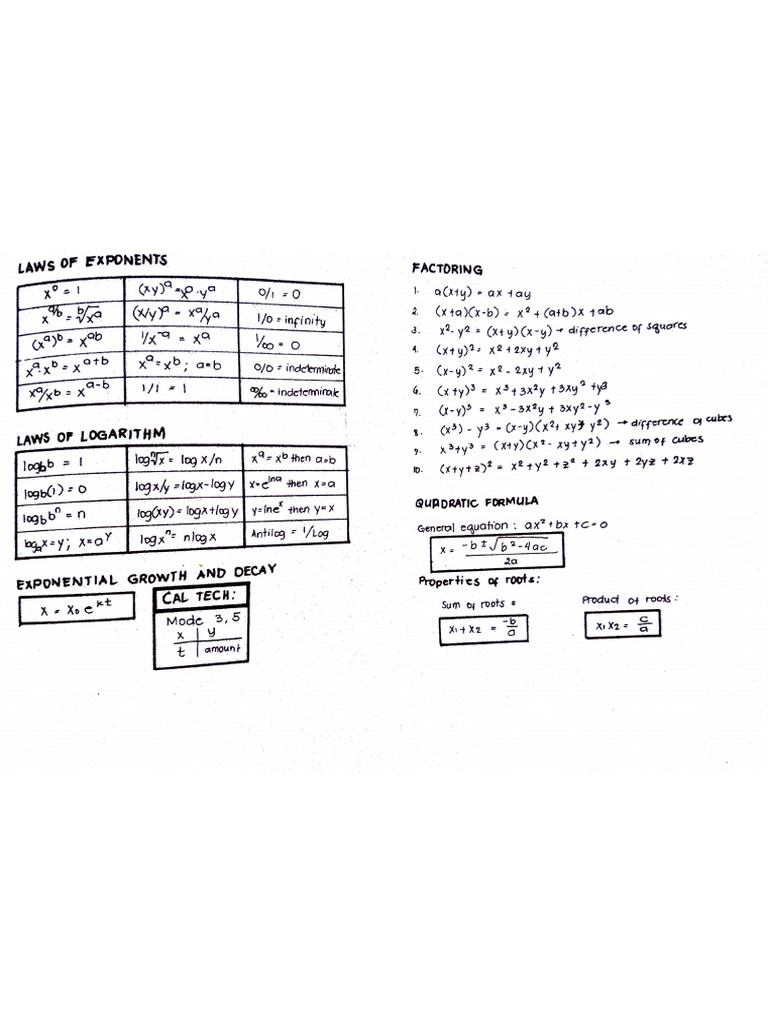 LAWS OF EXPONENTS
x⁰ = 1 | (xy)ᵃ = xᵃ·yᵃ | 0/1 = 0
x^(a/b) = ᵇ√xᵃ | (x/y)ᵃ = xᵃ/yᵃ | 1/0 = infinity
(xᵃ)ᵇ = xᵃᵇ | 1/x⁻ᵃ = xᵃ | 1/∞ = 0
xᵃ·xᵇ = xᵃ⁺ᵇ | xᵃ = xᵇ; a=b | 0/0 = indeterminate
xᵃ/xᵇ = xᵃ⁻ᵇ | 1/1 = 1 | ∞/∞ = indeterminate
LAWS OF LOGARITHM
log_b b = 1 | log ⁿ√x = log x/n | xᵃ = xᵇ then a=b
log b(1) = 0 | log x/y = log x - log y | x = e^(ln a) then x=a
log_b bⁿ = n | log(xy) = log x + log y | y = ln eˣ then y=x
log_a x = y; x = aʸ | log xⁿ = n log x | Antilog = 1/Log
EXPONENTIAL GROWTH AND DECAY
x = x₀ e^(kt)
CAL TECH:
Mode 3, 5
x | y
t | amount
FACTORING
1. a(x+y) = ax + ay
2. (x+a)(x-b) = x² + (a+b)x + ab
3. x² - y² = (x+y)(x-y) → difference of squares
4. (x+y)² = x² + 2xy + y²
5. (x-y)² = x² - 2xy + y²
6. (x+y)³ = x³ + 3x²y + 3xy² + y³
7. (x-y)³ = x³ - 3x²y + 3xy² - y³
8. (x³) - y³ = (x-y)(x² + xy + y²) → difference of cubes
9. x³ + y³ = (x+y)(x² - xy + y²) → sum of cubes
10. (x+y+z)² = x² + y² + z² + 2xy + 2yz + 2xz
QUADRATIC FORMULA
General equation : ax² + bx + c = 0
x = (-b ± √(b² - 4ac))/2a
Properties of roots:
Sum of roots =
x₁ + x₂ = -b/a
Product of roots :
x₁x₂ = c/a